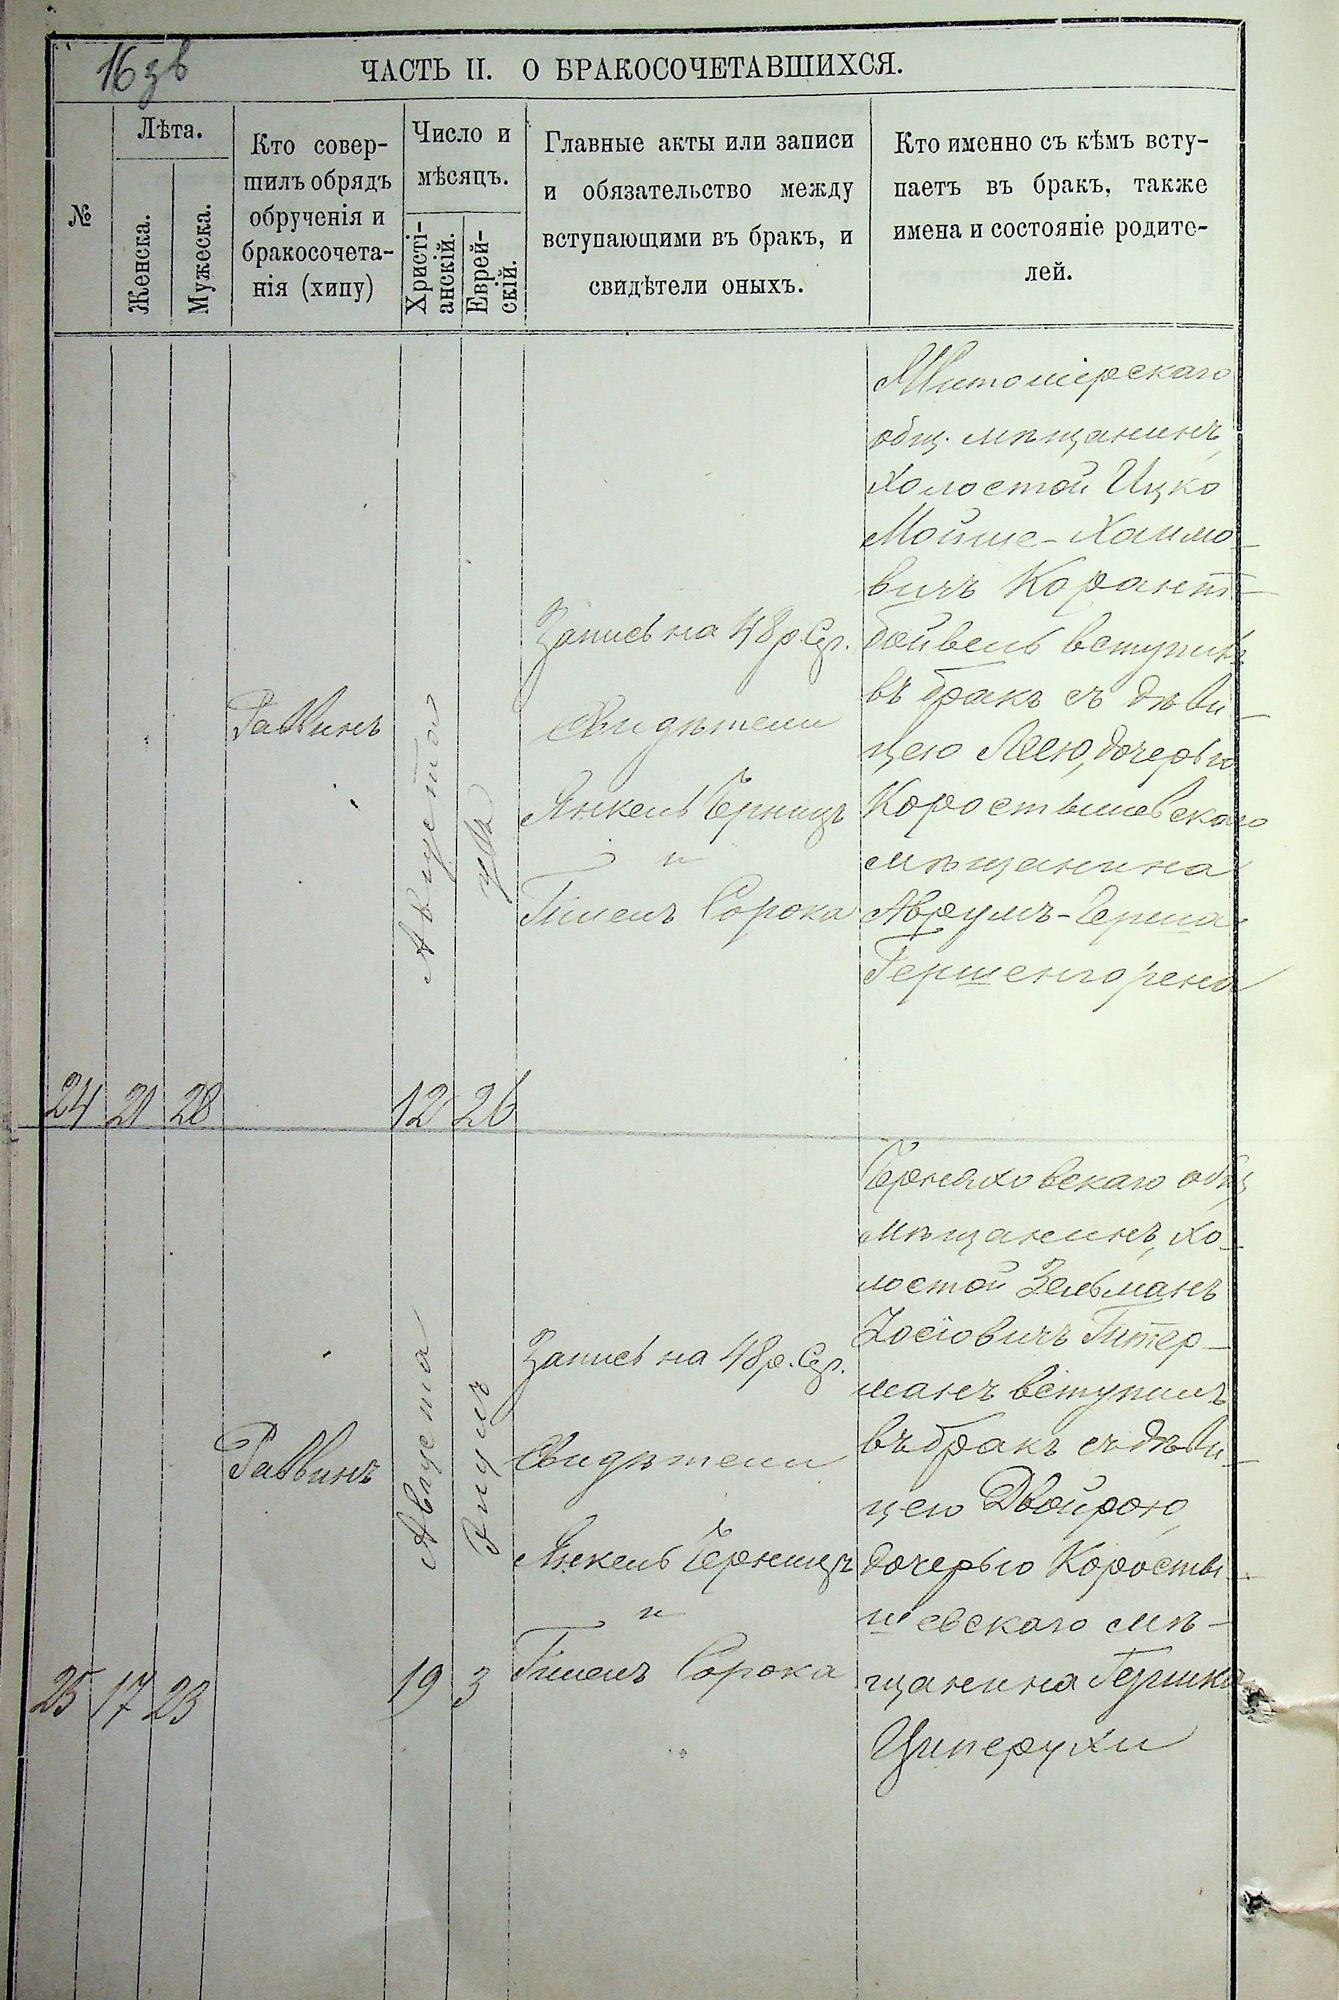 16 зв
ЧАСТЬ II. О БРАКОСОЧЕТАВШИХСЯ.
№
Лѣта.
Женска.
Мужеска.
Кто совер-
шилъ обрядъ
обрученія и
бракосочета-
нія (хипу)
Число и
мѣсяцъ.
Христі-
анскій.
Еврей-
скій.
Главные акты или записи
и обязательство между
вступающими въ бракъ, и
свидѣтели оныхъ.
Кто именно съ кѣмъ всту-
паетъ въ бракъ, также
имена и состояніе родите-
лей.
24
21
28
Раввинъ
Августа
12
26
Запись на 48 р. Сер.
Свидѣтели
Янкель Черницъ
и
Гишель Сорока
Житомірскаго
общ. мѣщанинъ,
холостой Ицко
Мойше-Хаимо-
вичъ Корант-
бойвель вступилъ
въ бракъ съ дѣви-
цею Леею, дочерью
Коростышевскаго
мѣщанина
Аврумъ-Герша
Гершенгорена
25
17
23
Раввинъ
Августа
19
Элулъ
3
Запись на 48 р. Сер.
Свидѣтели
Янкель Черницъ
и
Гишель Сорока
Черняховскаго общ.
мѣщанинъ, хо-
лостой Зельманъ
Іосіовичъ Гитер-
манъ вступилъ
въ бракъ съ дѣви-
цею Двойрою,
дочерью Коросты-
шевскаго мѣ-
щанина Гершка
Циперухи